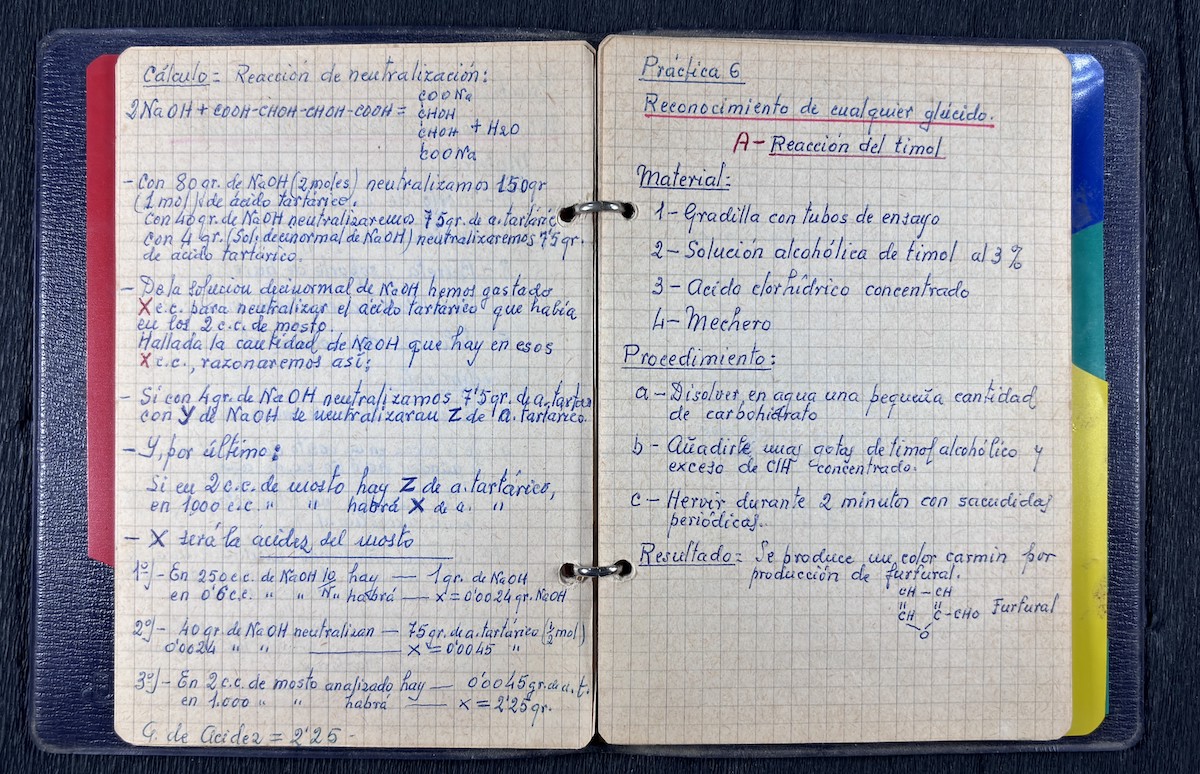 Cálculo = Reacción de neutralización:
2NaOH + COOH-CHOH-CHOH-COOH =
COONa
CHOH
CHOH + H2O
COONa
- Con 80 gr. de NaOH (2 moles) neutralizamos 150 gr
(1 mol) de ácido tartárico.
Con 40 gr. de NaOH neutralizaremos 75 gr. de a. tartáric
Con 4 gr. (Sol. decinormal de NaOH) neutralizaremos 7'5 gr.
de ácido tartárico.
- De la solución decinormal de NaOH hemos gastado
X c.c. para neutralizar el ácido tartárico que había
en los 2 c.c. de mosto.
Hallada la cantidad de NaOH que hay en esos
X c.c., razonaremos así:
- Si con 4 gr. de NaOH neutralizamos 7'5 gr. de a. tartár
con y de NaOH se neutralizarán Z de a. tartárico.
- Y, por último:
Si en 2 c.c. de mosto hay Z de a. tartárico,
en 1000 c.c. " " habrá X de a. "
- X será la acidez del mosto
1º) - En 250 c.c. de NaOH 10/N hay — 1 gr. de NaOH
en 0'6 c.c. " " " habrá — x = 0'0024 gr. NaOH
2º) - 40 gr. de NaOH neutralizan — 75 gr. de a. tartárico (½ mol)
0'0024 " " — x = 0'0045 "
3º) - En 2 c.c. de mosto analizado hay — 0'0045 gr. de a. t.
en 1.000 " " habrá — x = 2'25 gr.
G. de Acidez = 2'25 -
Práctica 6
Reconocimiento de cualquier glúcido.
A- Reacción del timol
Material:
1- Gradilla con tubos de ensayo
2- Solución alcohólica de timol al 3 %
3- Acido clorhídrico concentrado
4- Mechero
Procedimiento:
a - Disolver en agua una pequeña cantidad
de carbohidrato
b - Añadirle unas gotas de timol alcohólico y
exceso de ClH concentrado.
c - Hervir durante 2 minutos con sacudidas
periódicas.
Resultado = Se produce un color carmín por
producción de furfural.
CH - CH
CH C - CHO Furfural
O